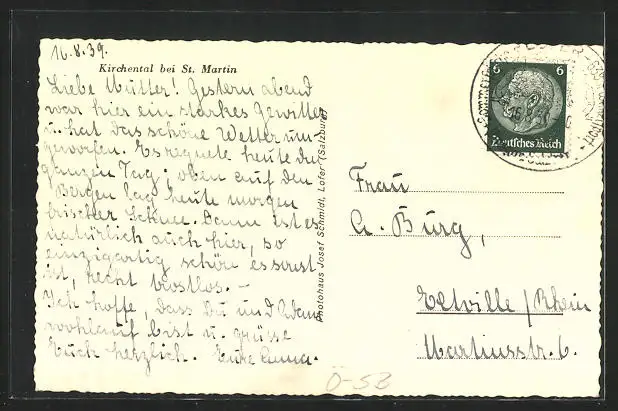 16.8.39.
Kirchental bei St. Martin
Liebe Mutter! Gestern abend
war hier ein starkes Gewitter
u. hat das schöne Wetter um
geworfen. Es regnete heute den
ganzen Tag; oben auf den
Bergen lag heute morgen
frischer Schnee. Dann ist es
natürlich auch hier, so
einzigartig schön es sonst
ist, recht trostlos. –
Ich hoffe, dass Du und
wohlauf bist u. grüsse
Euch herzlich. Eure Anna.
Photohaus Josef Schmidt, Lofer (Salzburg)
6 6
Deutsches Reich
Frau
A. Burg,
Eltville / Rhein
Martinsstr. 6.
Ö-SZ